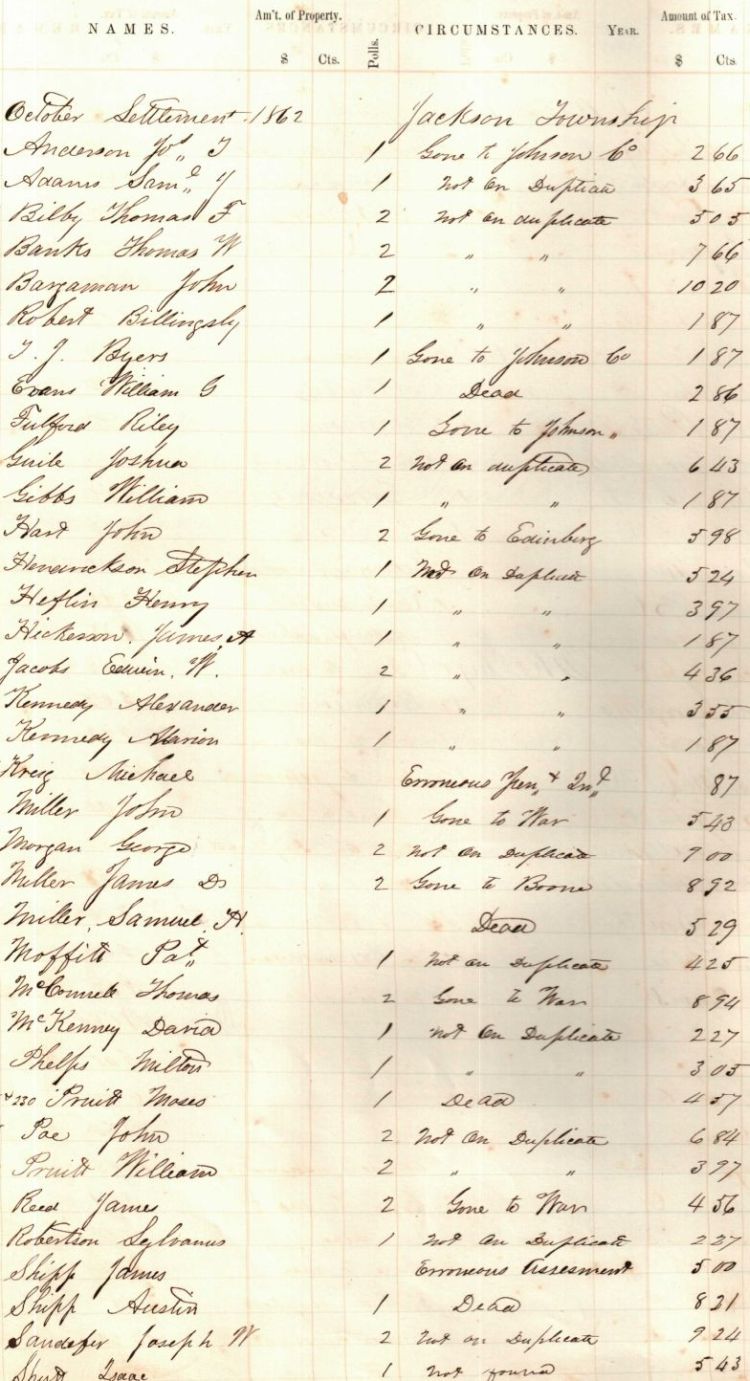 NAMES. Am't. of Property. Polls. CIRCUMSTANCES. YEAR. Amount of Tax.
$ Cts. $ Cts.
October Settlement 1862 Jackson Township
Anderson Jos T 1 Gone to Johnson Co 2 66
Adams Saml Y 1 Not On Duplicate 3 65
Bilby Thomas F 2 Not On duplicate 5 05
Banks Thomas W 2 " " 7 66
Bargaman John 2 " " 10 20
Robert Billingsly 1 " " 1 87
T. J. Byers 1 Gone to Johnson Co 1 87
Evans William G 1 Dead 2 86
Fulford Riley 1 Gone to Johnson " 1 87
Guile Joshua 2 Not On duplicate 6 43
Gibbs William 1 " " 1 87
Hart John 2 Gone to Edinburg 5 98
Hendrickson Stephen 1 Not On Duplicate 5 24
Heflin Henry 1 " " 3 97
Hickerson James A 1 " " 1 87
Jacobs Edwin. W. 2 " " 4 36
Kennedy Alexander 1 " " 3 55
Kennedy Marion 1 " " 1 87
Kreig Michael Erroneous Pen & Int 87
Miller John 1 Gone to War 5 43
Morgan George 2 Not On Duplicate 7 00
Miller James D 2 Gone to Boone 8 92
Miller, Samuel. H. Dead 5 29
Moffitt Pat 1 Not On Duplicate 4 25
McConnell Thomas 2 Gone to War 8 94
McKenney David 1 Not On Duplicate 2 27
Phelps Milton 1 " " 3 05
230 Pruitt Moses 1 Dead 4 57
Poe John 2 Not On Duplicate 6 84
Pruitt William 2 " " 3 97
Reed James 2 Gone to War 4 56
Robertson Sylvanus 1 Not On Duplicate 2 27
Shipp James Erroneous Assesment 5 00
Shipp Austin 1 Dead 8 21
Sandefer Joseph W 2 Not on Duplicate 9 24
Isaac 1 Not found 5 43